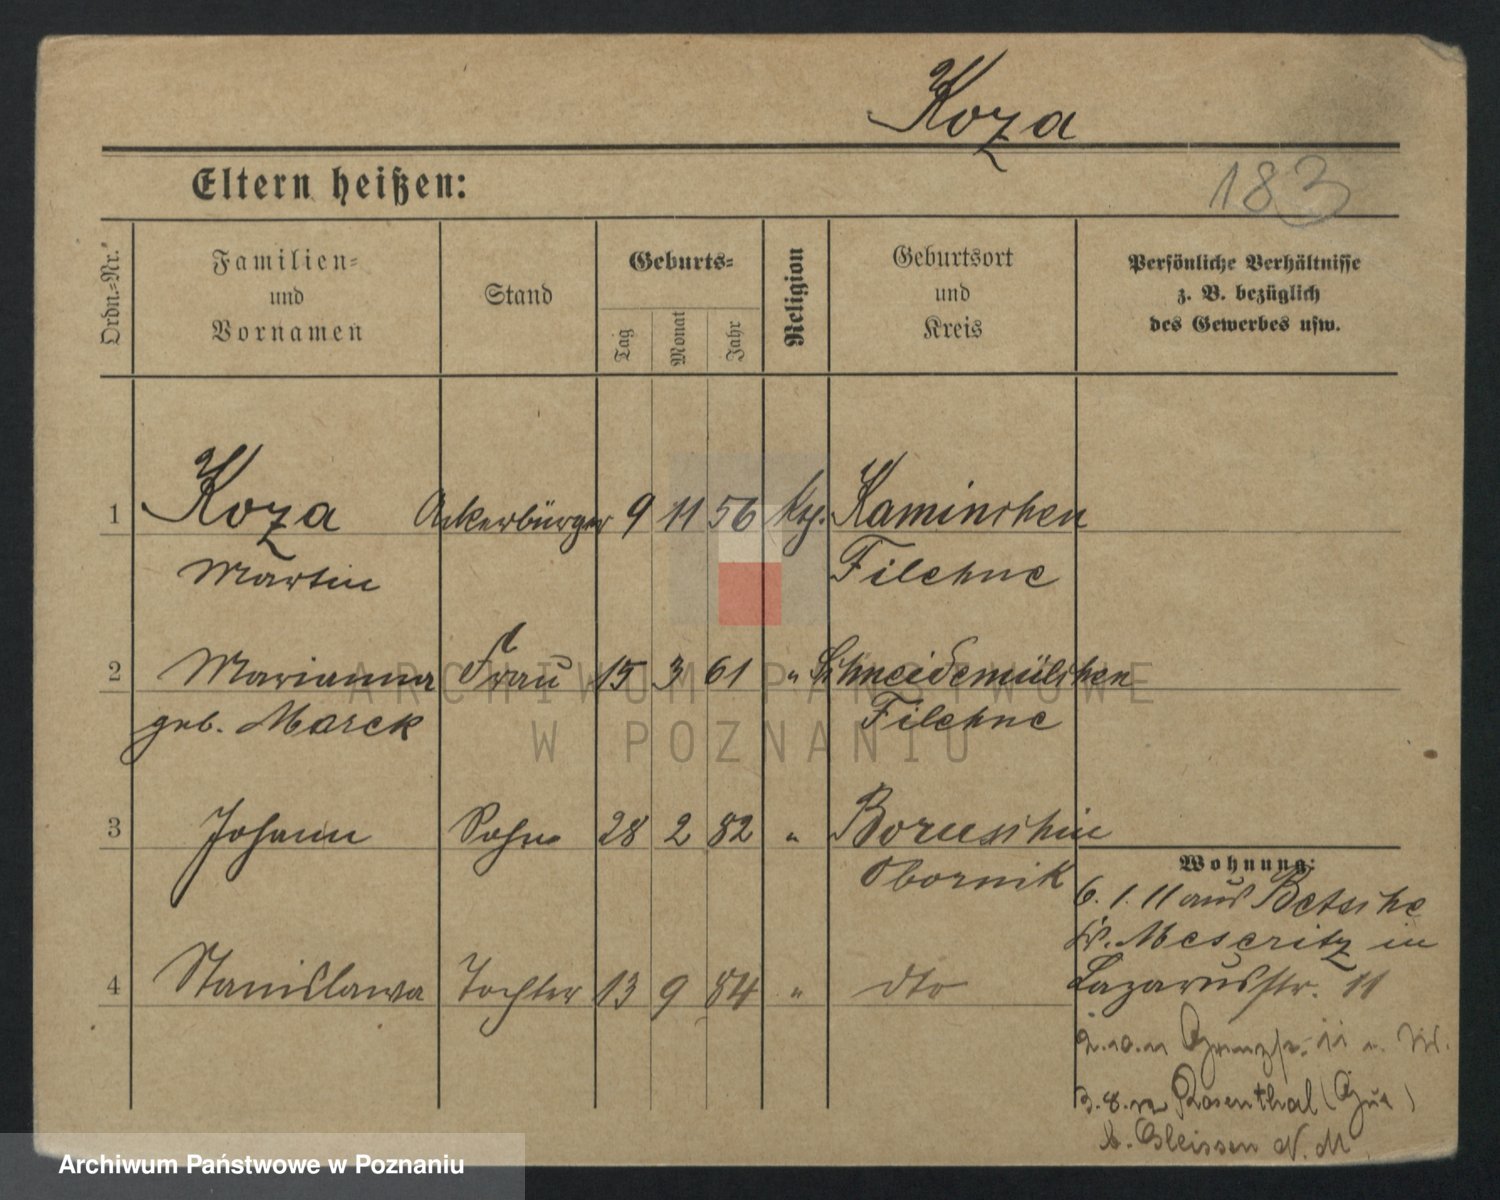 Koza
Eltern heißen:
183
Ordn.-Nr.
Familien-
und
Vornamen
Stand
Geburts-
Tag
Monat
Jahr
Religion
Geburtsort
und
Kreis
Persönliche Verhältnisse
z. B. bezüglich
des Gewerbes usw.
1 Koza Ackerbürger 9 11 56 Kaminchen
Martin Filehne
2 Marianna Frau 15 3 61 " Schneidemülchen
geb. Marck Filehne
3 Johann Sohn 28 2 82 " Boruschin
Obornik
4 Stanislawa Tochter 13 9 84 " dto
Wohnung:
6. 1. 11 aus Betsche
Kr. Meseritz in
Lazarusstr. 11
2. 10. 11 11
3. 8. Rosenthal
b. Gleissen N. M.
ARCHIWUM PAŃSTWOWE
W POZNANIU
Archiwum Państwowe w Poznaniu